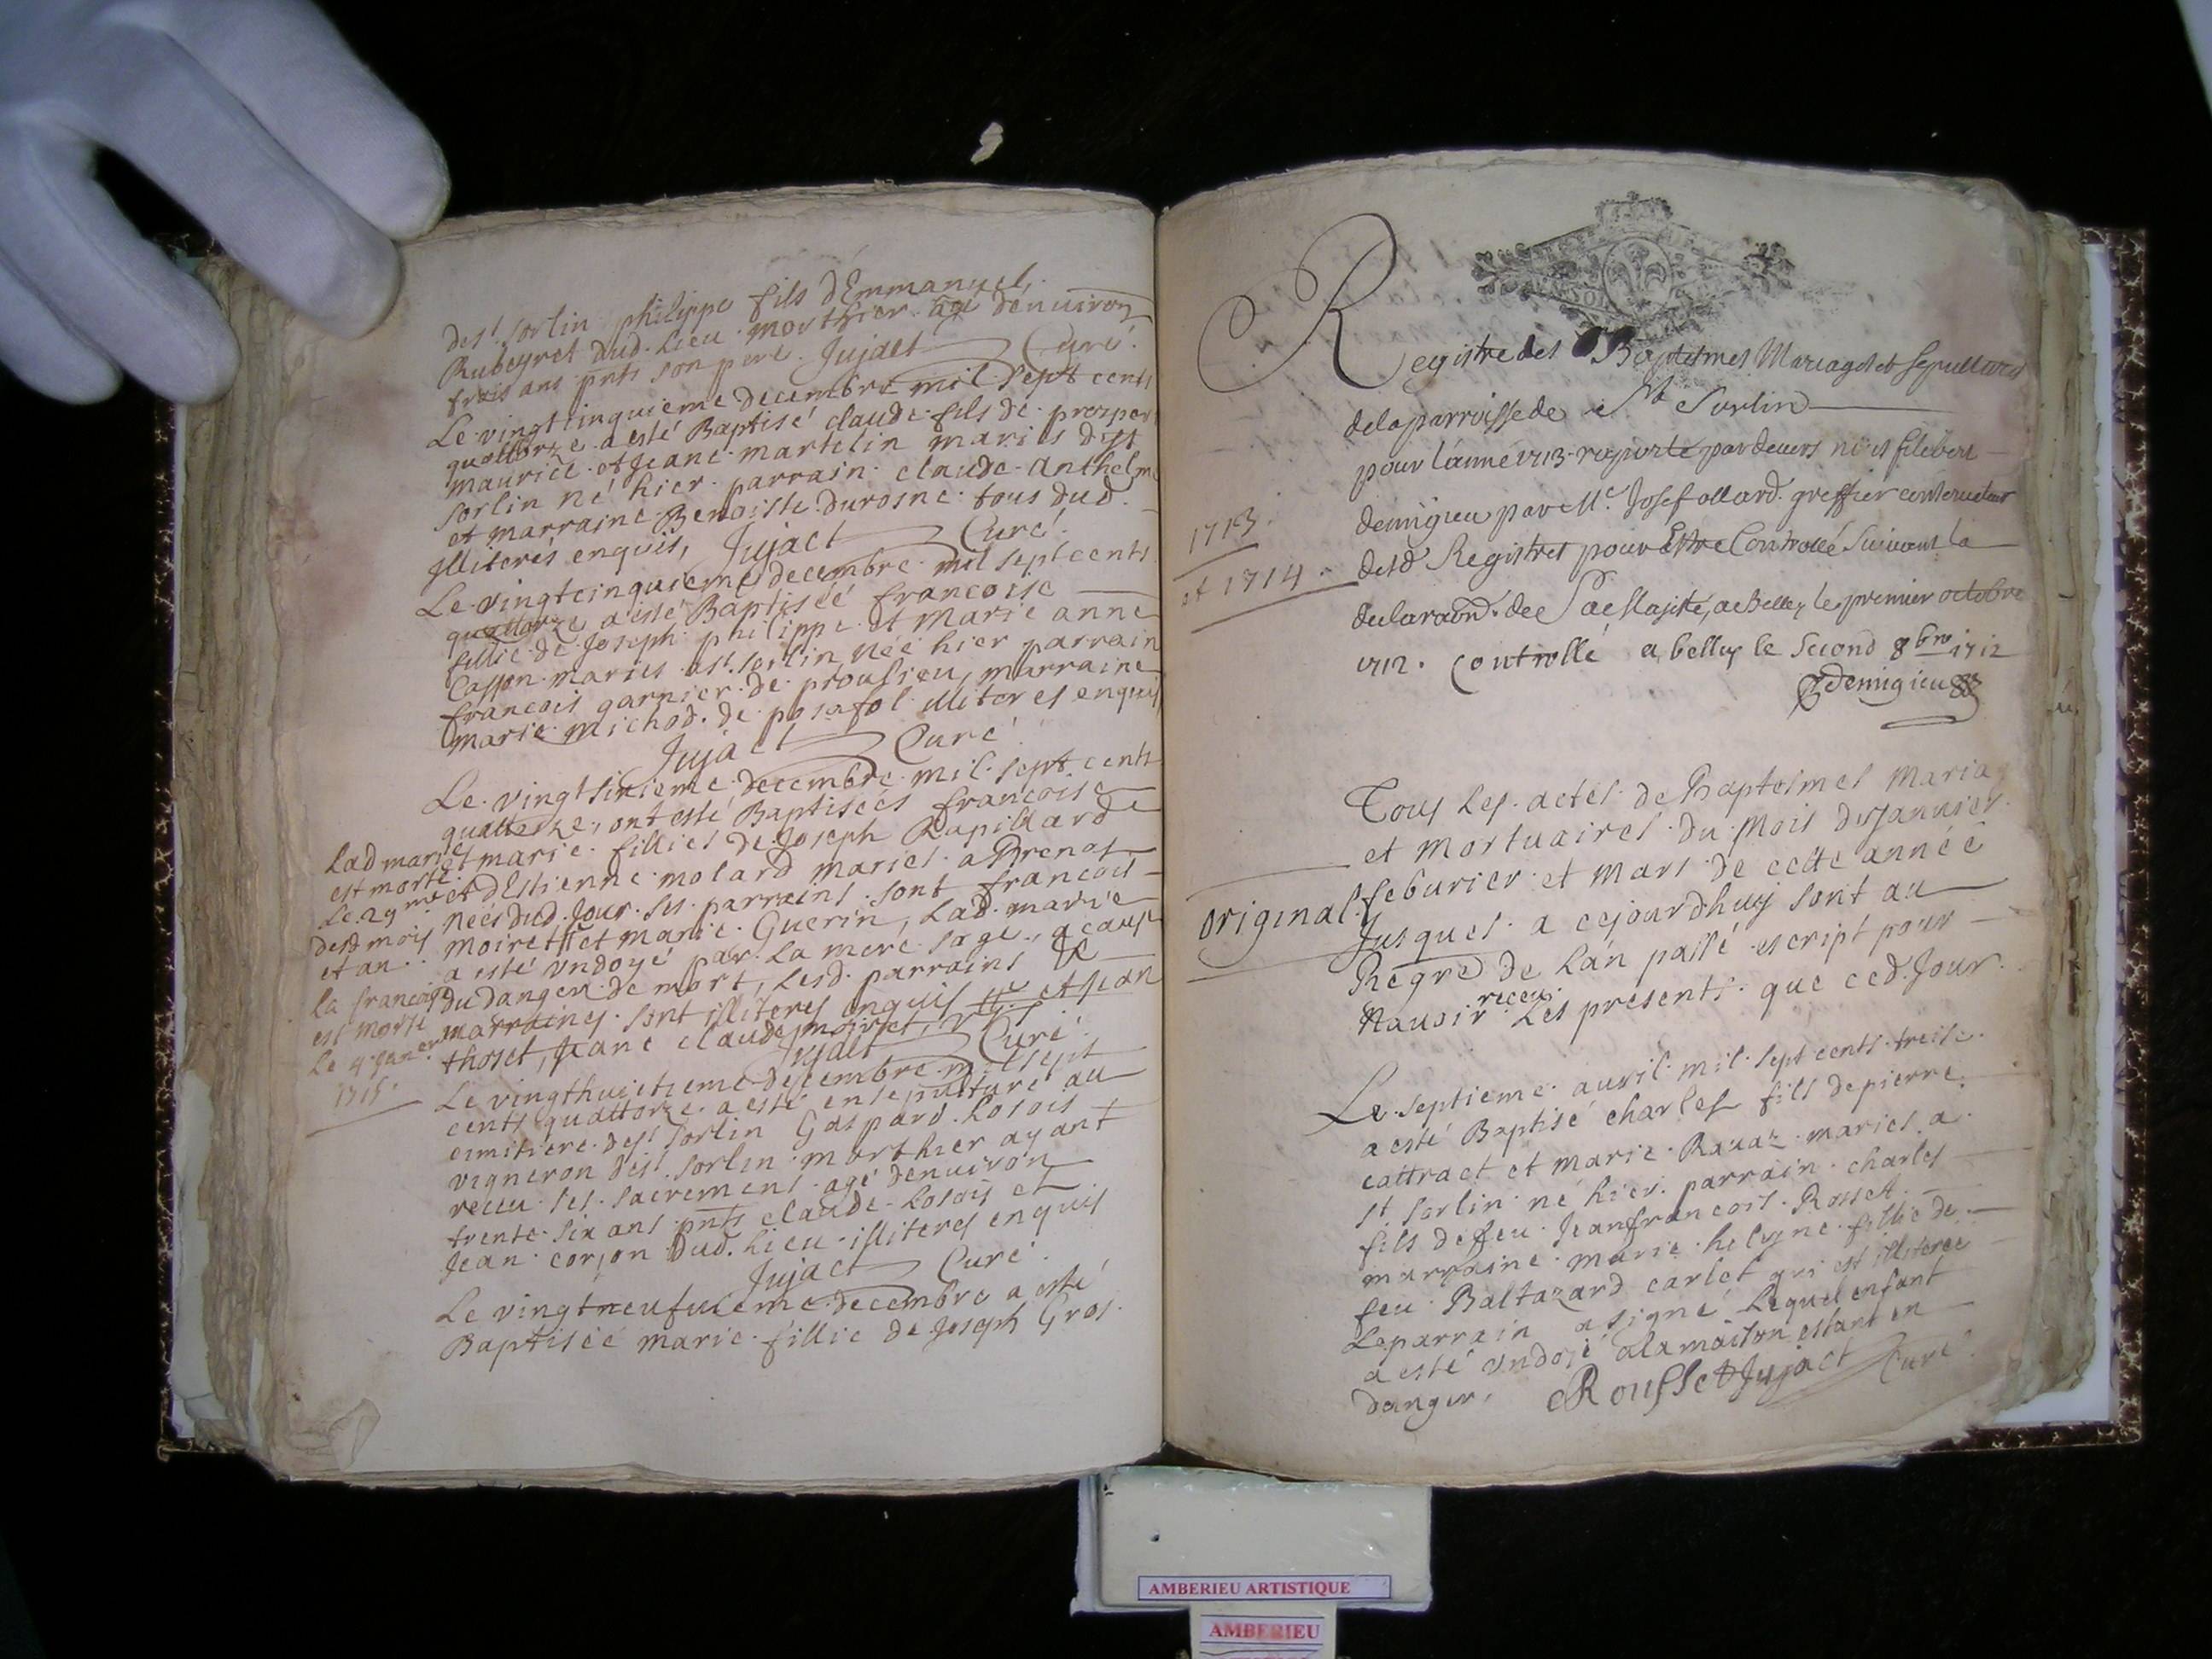 dest. Sorlin philippe fils dEmmanuel
Rubeyret dud. Lieu morthier agé denuiron
trois ans pnts son pere. Jujact Curé.
Le vingtcinquieme decembre mil sept cents
quattorze a esté Baptisé claude fils de prosper
maurice et Jeane martelin mariés a st
sorlin né hier. parrain claude anthelme
et marraine Benoiste durosne tous dud.
Illiterés enquis, Jujact Curé.
Le vingtcinquieme decembre mil sept cents
quattorze a esté Baptiseé francoise
fillie de Joseph philippe et marie anne
Casson mariés a st. sorlin née hier parrain
francois garnier de proulieu, marraine
marie michod. de posafol illiteres enquis
Jujact Curé
Le vingtsixieme decembre mil sept cents
quattorze, ont esté Baptisées francoise
et marie fillies de Joseph Rapillard
et dEstienne molard mariés a Brenas
neés dud. Jour. ses parrains sont francois
moiret et marie Guerin, Lad. marie
a esté vndoyé par La mere sage, a cause
du danger de mort, Lesd. parrains &
marraines sont illiteres enquis et Jean
thoset, Jeane claude moiret,
Jujact Curé.
Lad marie
est morte
Le 29me
desd mois
et an.
la francoise
est morte
Le 4 Janer
1715.
Le vingthuictieme decembre mil sept
cents quattorze a esté ensepulturé au
cimitiere dest sorlin Gaspard Losois
vigneron dest. sorlin morthier ayant
receu ses sacremens agé denuiron
trente six ans pnts claude Losois et
Jean corjon dud. Lieu illiteres enquis
Jujact Curé.
Le vingtneufuieme decembre a esté
Baptiseé marie fillie de Joseph Gros.
Registre des Baptesmes Mariages et Sepultures
de la parroisse de St Sorlin
pour l'année 1713 raporté pardeuers nous filebert
demigieu par Me. Josef ollard greffier conseruateur
desd Registres pour Estre Controllé Suiuant la
declaraon. de Sa Majesté, a Belley le premier octobre
1712. Controllé a belley le Second 8bre 1712
demigieu
1713.
et 1714.
Tous Les actes de Baptesmes maria
et mortuaires du mois de Januier
feburier et mars de cette année
Jusques a cejourdhuy sont au
Regre de Lán passé escript pour
Nauoir receu Les presents que ced. Jour.
original.
Le septieme auril mil sept cents treise
a esté Baptisé charles fils de pierre
cattract et marie Rauaz mariés a
st sorlin né hier. parrain charles
fils de feu Jeanfrancois Rosset.
marraine marie helyne fillie de
feu Baltazard carlet qui est illiterée
Le parrain a signé Lequel enfant
a esté vndoié a la maison estant en
danger, Rousset Jujact Curé
AMBERIEU ARTISTIQUE
AMBERIEU